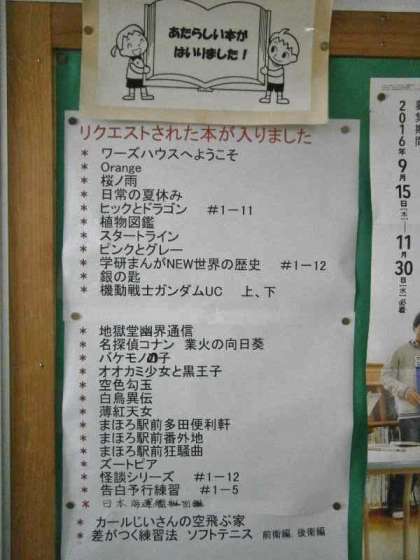 あたらしい本が
はいりました！
リクエストされた本が入りました
* ワーズハウスへようこそ
* Orange
* 桜ノ雨
* 日常の夏休み
* ヒックとドラゴン #1－11
* 植物図鑑
* スタートライン
* ピンクとグレー
* 学研まんがNEW世界の歴史 #1－12
* 銀の匙
* 機動戦士ガンダムUC 上、下
* 地獄堂幽界通信
* 名探偵コナン 業火の向日葵
* バケモノの子
* オオカミ少女と黒王子
* 空色勾玉
* 白鳥異伝
* 薄紅天女
* まほろ駅前多田便利軒
* まほろ駅前番外地
* まほろ駅前狂騒曲
* ズートピア
* 怪談シリーズ #1－12
* 告白予行練習 #1－5
* 日本
* カールじいさんの空飛ぶ家
* 差がつく練習法 ソフトテニス 前衛編 後衛編
2016年9月15日[木]―11月30日[水]必着